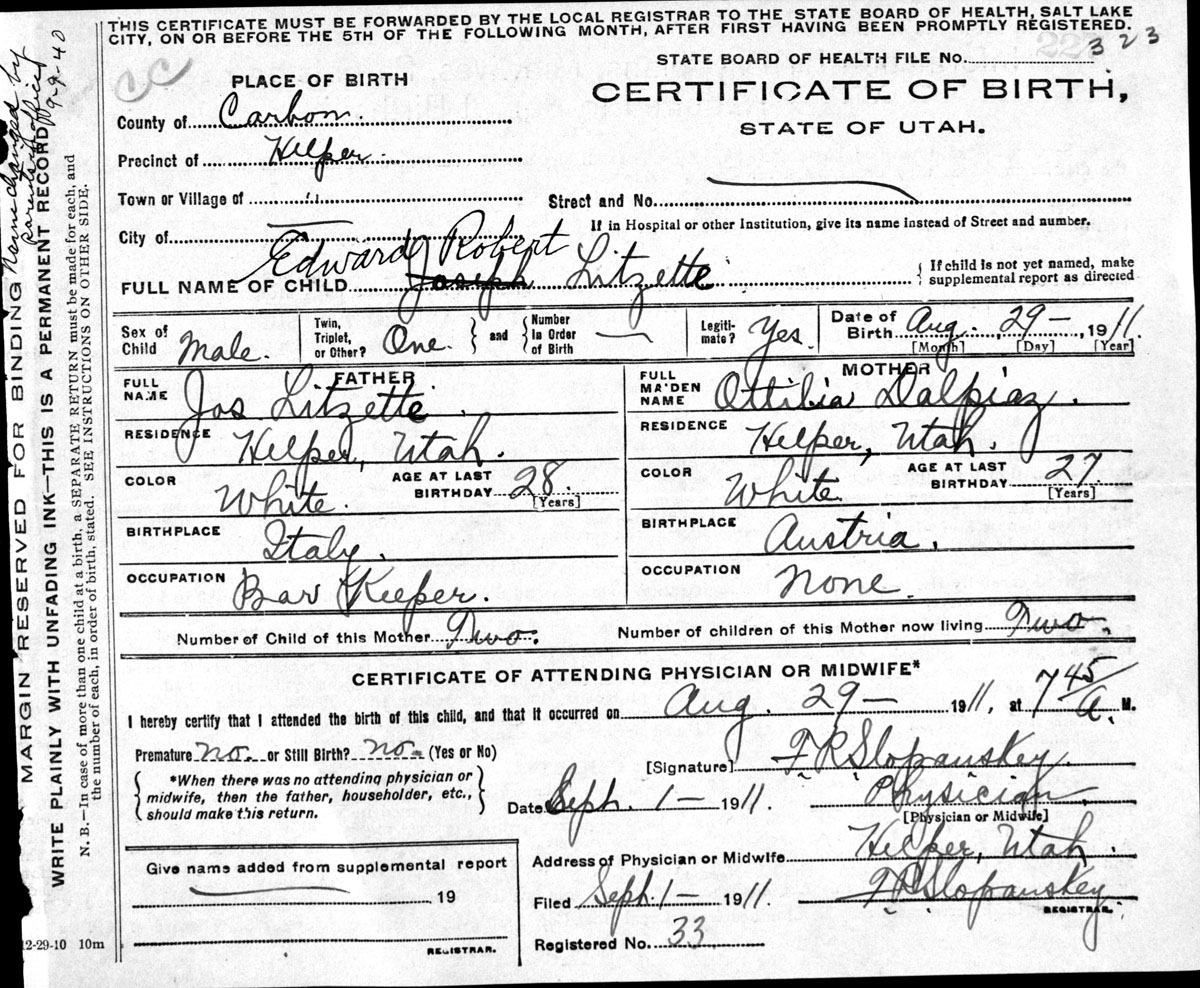 THIS CERTIFICATE MUST BE FORWARDED BY THE LOCAL REGISTRAR TO THE STATE BOARD OF HEALTH, SALT LAKE
CITY, ON OR BEFORE THE 5TH OF THE FOLLOWING MONTH, AFTER FIRST HAVING BEEN PROMPTLY REGISTERED.
STATE BOARD OF HEALTH FILE NO. 323
CC
PLACE OF BIRTH
CERTIFICATE OF BIRTH,
STATE OF UTAH.
County of Carbon.
Precinct of Helper.
Town or Village of "
Street and No.
If in Hospital or other Institution, give its name instead of Street and number.
City of
Edward Robert
FULL NAME OF CHILD Joseph Litzette
{ If child is not yet named, make
supplemental report as directed
Sex of
Child Male.
Twin,
Triplet,
or Other? One.
and
Number
in Order
of Birth —
Legiti-
mate? Yes.
Date of
Birth Aug. 29 — , 1911.
[Month] [Day] [Year]
FATHER
FULL
NAME Jos Litzette.
RESIDENCE Helper, Utah.
COLOR White. AGE AT LAST
BIRTHDAY 28.
[Years]
BIRTHPLACE Italy.
OCCUPATION Bar Keeper.
MOTHER
FULL
MAIDEN
NAME Ottilia Dalpiaz.
RESIDENCE Helper, Utah.
COLOR White. AGE AT LAST
BIRTHDAY 27.
[Years]
BIRTHPLACE Austria.
OCCUPATION None.
Number of Child of this Mother Two. Number of children of this Mother now living Two.
CERTIFICATE OF ATTENDING PHYSICIAN OR MIDWIFE*
I hereby certify that I attended the birth of this child, and that it occurred on Aug. 29 — 1911, at 7 45/A. M.
Premature no. or Still Birth? no. (Yes or No)
[Signature] F R Slopanskey.
{ *When there was no attending physician or
midwife, then the father, householder, etc.,
should make this return. }
Date Seph. 1 — 1911. Physician
[Physician or Midwife]
Address of Physician or Midwife Helper, Utah.
Give name added from supplemental report
19
REGISTRAR.
Filed Seph. 1 — 1911. F R Slopanskey
REGISTRAR.
Registered No. 33
12-29-10 10m
MARGIN RESERVED FOR BINDING
WRITE PLAINLY WITH UNFADING INK—THIS IS A PERMANENT RECORD
N. B.—In case of more than one child at a birth, a SEPARATE RETURN must be made for each, and
the number of each, in order of birth, stated. SEE INSTRUCTIONS ON OTHER SIDE.
Name changed by
parents 9-9-40